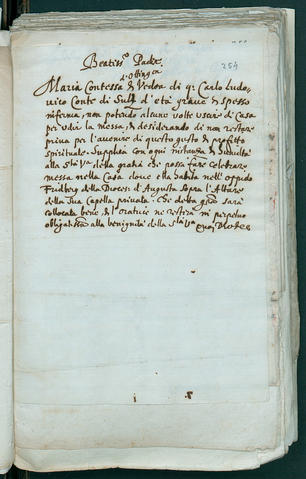 Beatiss.o Padre
254
d'Ottingen
Maria Contessa & Vedoa di q. Carlo Ludo-
uico Conte di Sultz d'età graue & spesso
inferma, non potendo alcune volte uscir di Casa
per udir la messa, & desiderando di non restar
priua per l'auenire di questo gusto & profitto
Spirituale. Supplica con ogni instanza & humiltà
alla S.tà V.ra della gratia che possa fare celebrar
messa nella Casa doue ella habita nell' oppido
Fridberg della Diocesi d'Augusta sopra l'Altare
della sua Capella priuata. Che detta gratia sarà
collocata bene, & l'oratrice ne restirà in perpetuo
obligatissima alla benignità della S.tà V.ra